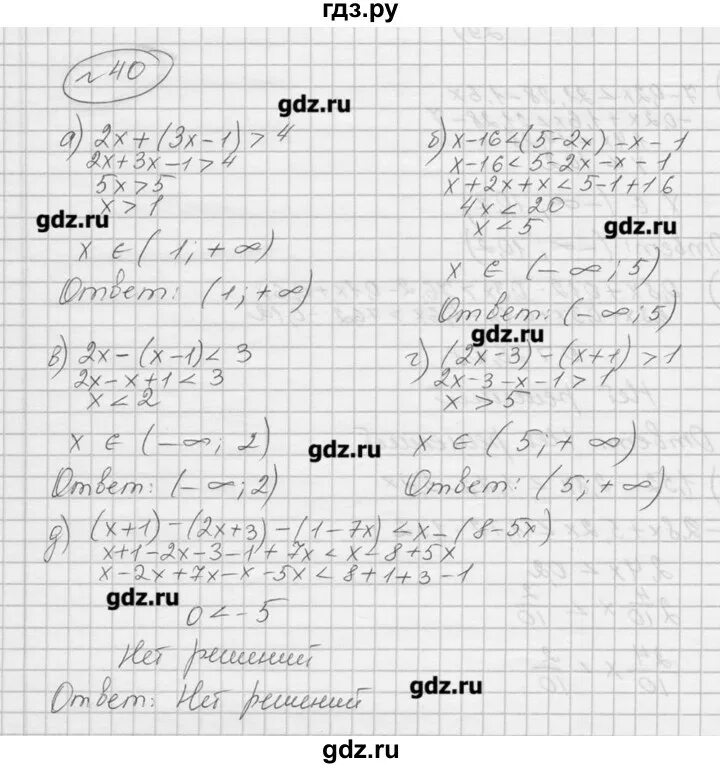 гдз.ру
№40
gdz.ru
а) 2x + (3x - 1) > 4
2x + 3x - 1 > 4
5x > 5
x > 1
gdz.ru
x ∈ (1; + ∞)
Ответ: (1; + ∞)
б) x - 16 < (5 - 2x) - x - 1
x - 16 < 5 - 2x - x - 1
x + 2x + x < 5 - 1 + 16
4x < 20
x < 5
gdz.ru
x ∈ (- ∞; 5)
Ответ: (- ∞; 5)
gdz.ru
в) 2x - (x - 1) < 3
2x - x + 1 < 3
x < 2
x ∈ (- ∞; 2)
gdz.ru
Ответ: (- ∞; 2)
г) (2x - 3) - (x + 1) > 1
2x - 3 - x - 1 > 1
x > 5
x ∈ (5; + ∞)
Ответ: (5; + ∞)
д) (x + 1) - (2x + 3) - (1 - 7x) < x - (8 - 5x)
x + 1 - 2x - 3 - 1 + 7x < x - 8 + 5x
x - 2x + 7x - x - 5x < 8 + 1 + 3 - 1
gdz.ru
0 < - 5
Нет решений
gdz.ru
Ответ: Нет решений
gdz.ru